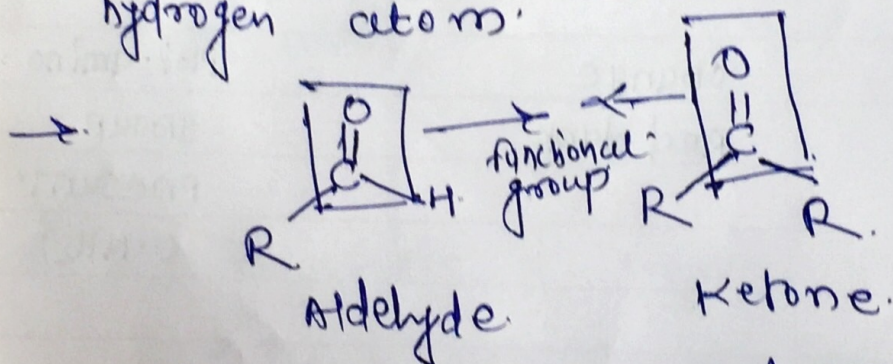 hydrogen atom.
O
O
||
||
C
C
functional
group
H
R
R
R.
Aldehyde.
Ketone.